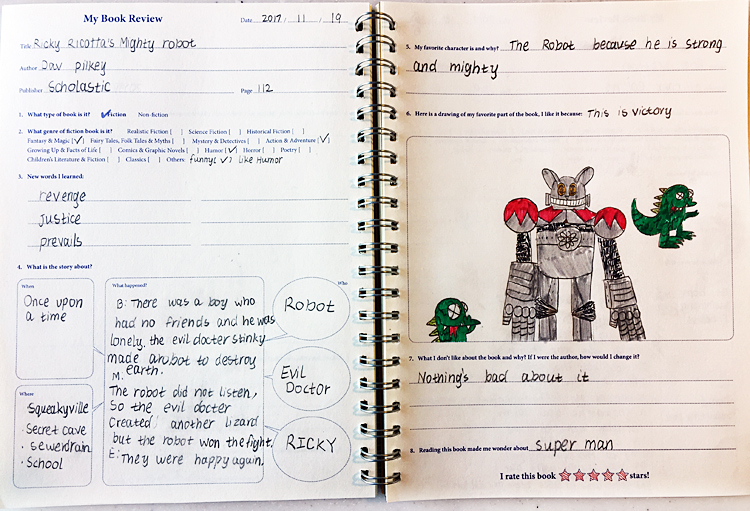 My Book Review
Date 2017 / 11 / 19
Title Ricky Ricotta's Mighty robot
Author Dav pilkey
Publisher Scholastic Page 112
1. What type of book is it? ✓Fiction Non-fiction
2. What genre of fiction book is it? Realistic Fiction [ ] Science Fiction [ ] Historical Fiction [ ]
Fantasy & Magic [✓] Fairy Tales, Folk Tales & Myths [ ] Mystery & Detectives [ ] Action & Adventure [✓]
Growing Up & Facts of Life [ ] Comics & Graphic Novels [ ] Humor [✓] Horror [ ] Poetry [ ]
Children's Literature & Fiction [ ] Classics [ ] Others: funny[✓] like Humor
3. New words I learned:
revenge
justice
prevails
4. What is the story about?
When
Once upon
a time
Where
Squeakyville
·Secret cave
·sewerdrain
·School
What happened?
B: There was a boy who
had no friends and he was
lonely. the evil docter stinky
made arobot to destroy
M. earth.
The robot did not listen,
So the evil docter
Created another lizard
but the robot won the fight.
E: They were happy again.
Who
Robot
Evil
Doctor
RICKY
5. My favorite character is and why? The Robot because he is strong
and mighty
6. Here is a drawing of my favorite part of the book, I like it because: This is victory
7. What I don't like about the book and why? If I were the author, how would I change it?
Nothing's bad about it
8. Reading this book made me wonder about super man
I rate this book ☆☆☆☆☆ stars!